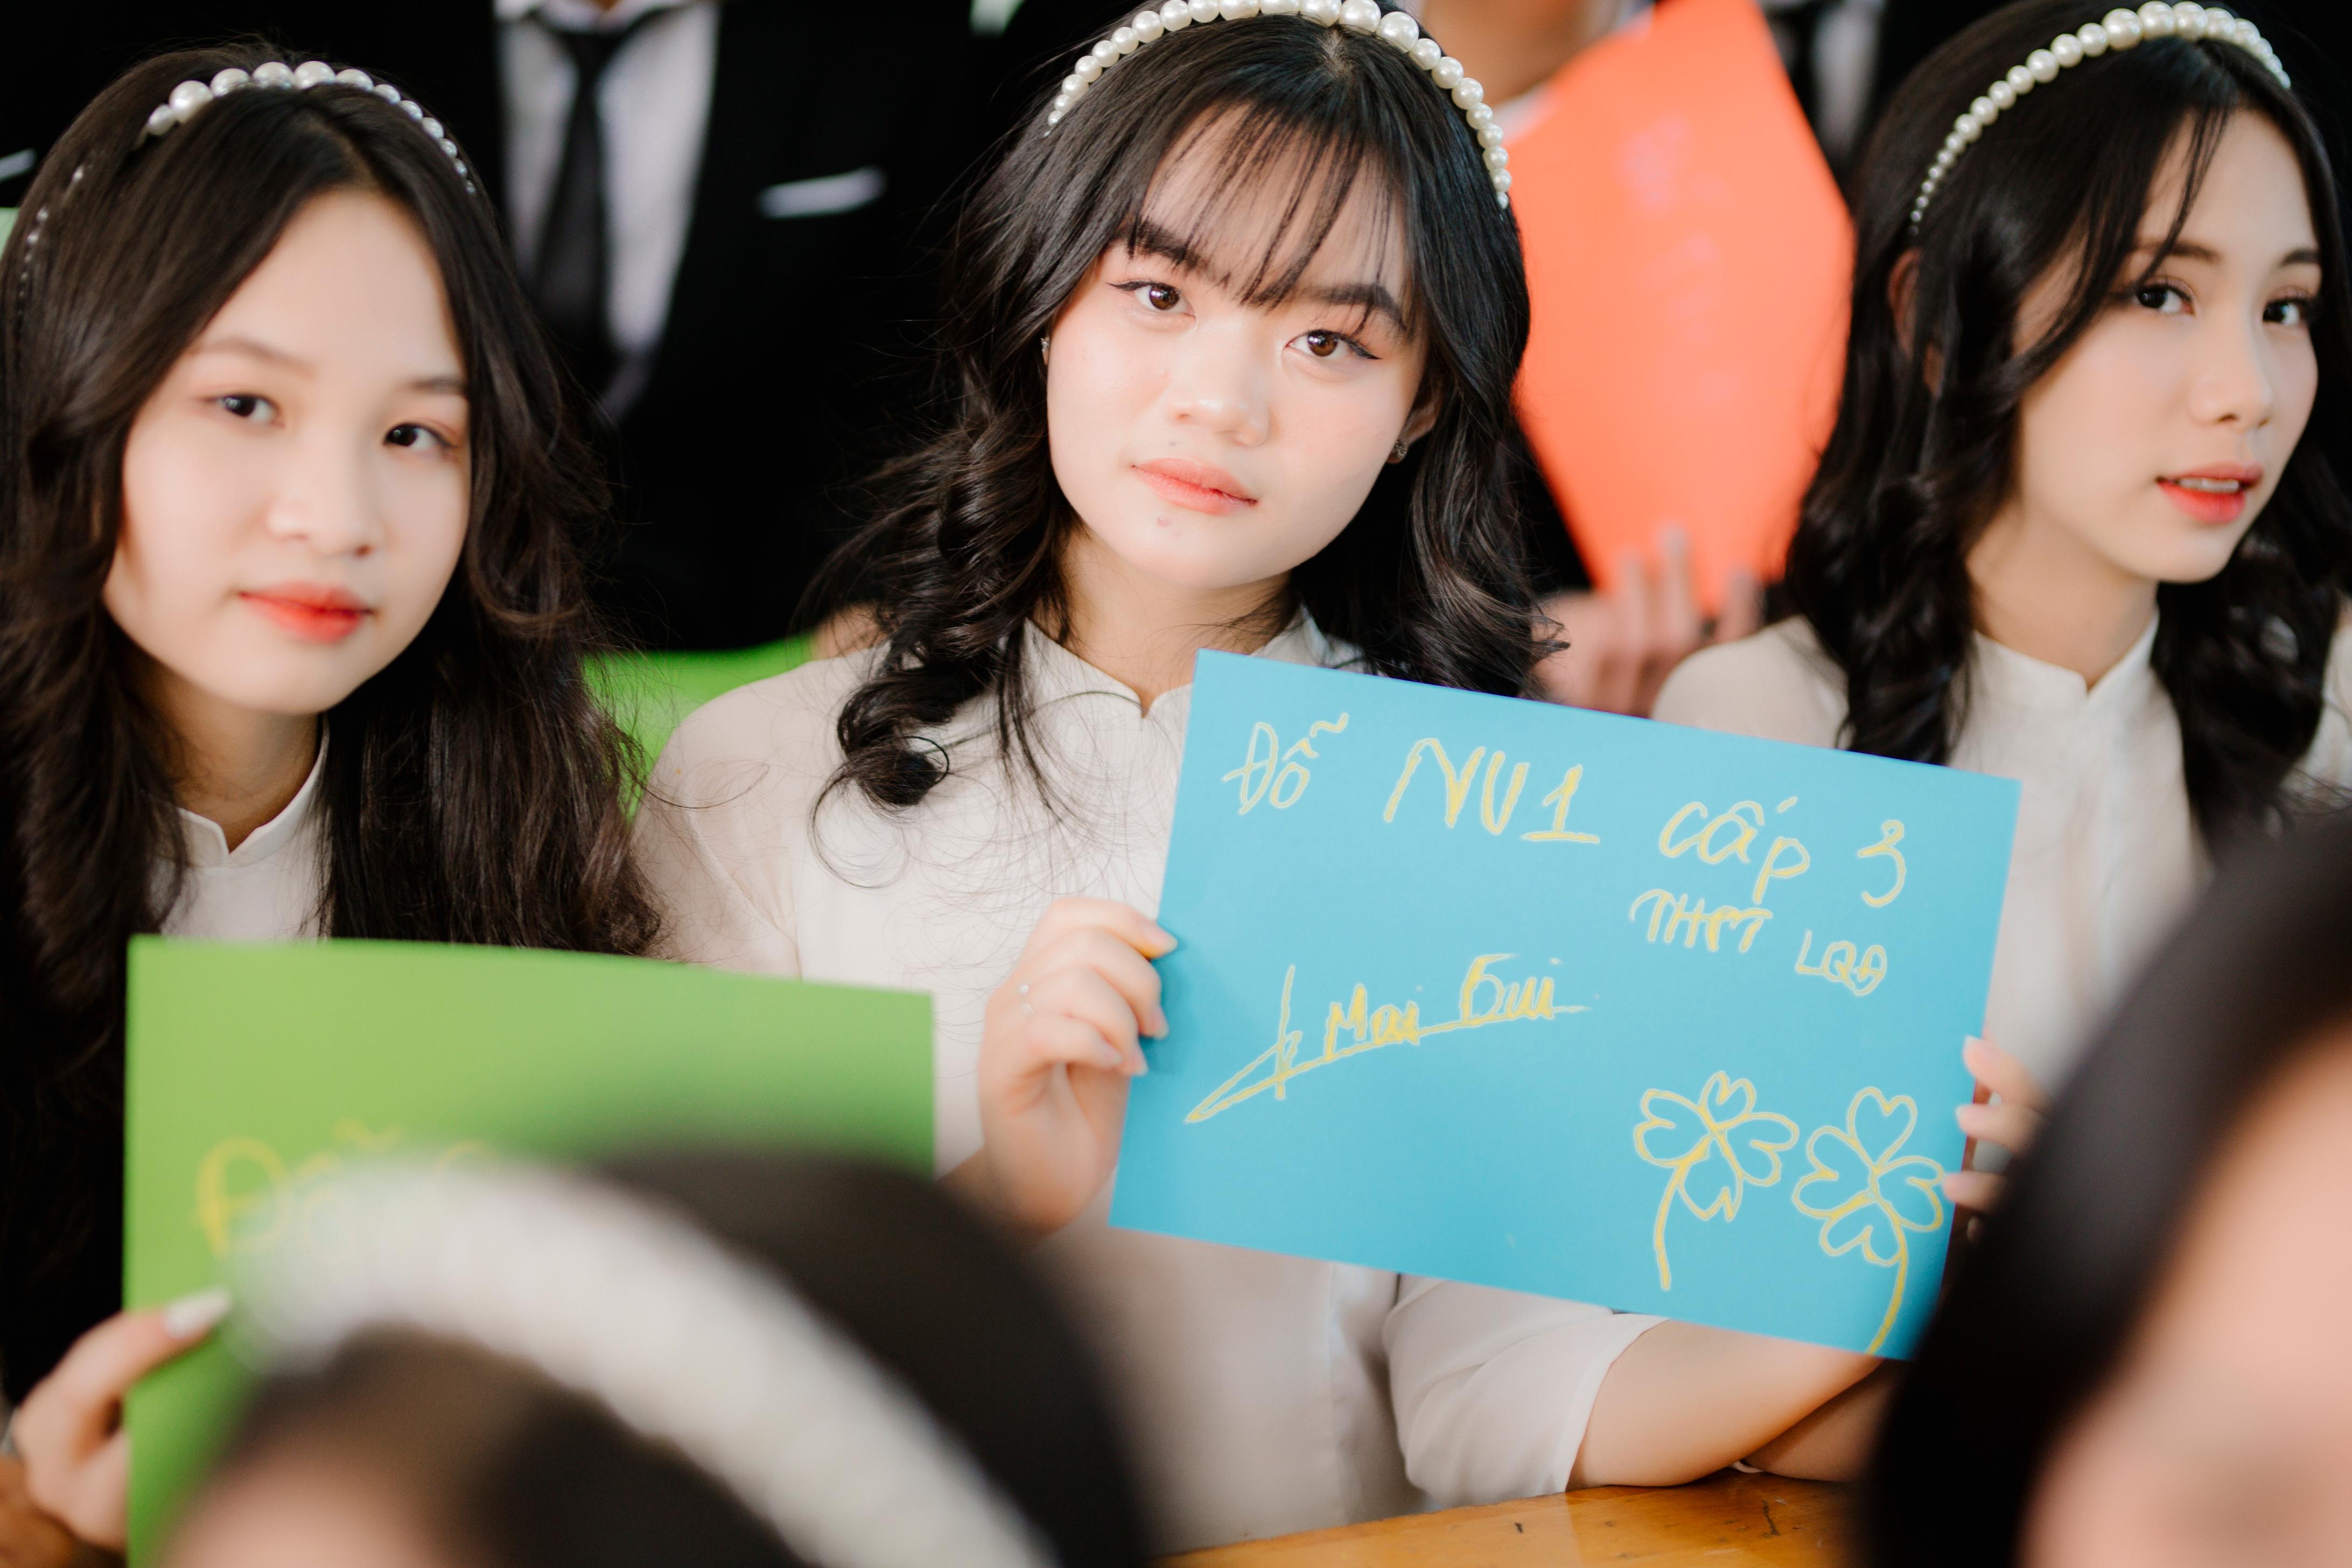 Đỗ NV1 cấp 3
THPT LQĐ
Mai Gui